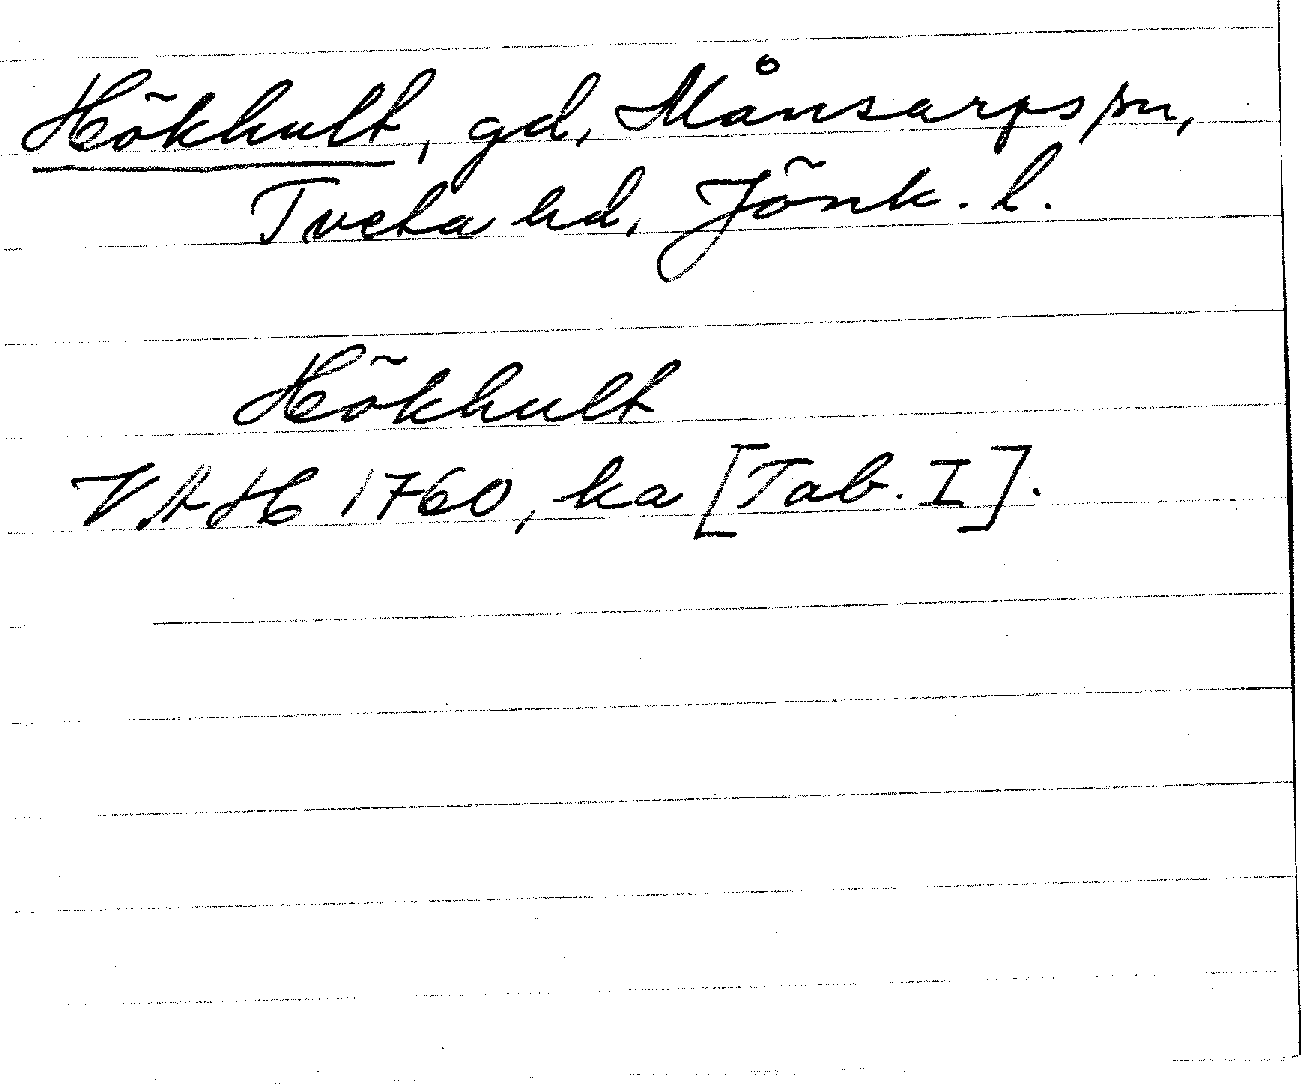 Hökhult, gd, Månsarps sn,
Tveta hd, Jönk. l.
Hökhult
VAH 1760, ka [Tab. I].